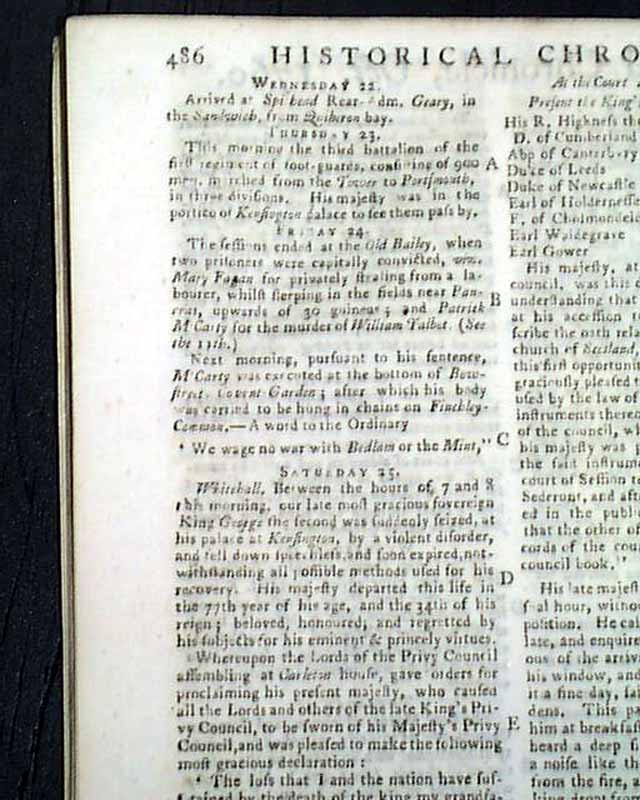 486 HISTORICAL CHRO
WEDNESDAY 22.
Arrived at Spithead Rear-Adm. Geary, in
the Sandwich, from Quiberon bay.
THURSDAY 23.
This morning the third battalion of the
first regiment of foot-guards, consisting of 900
men, marched from the Tower to Portsmouth,
in three divisions. His majesty was in the
portico of Kensington palace to see them pass by.
FRIDAY 24.
The sessions ended at the Old Bailey, when
two prisoners were capitally convicted, viz.
Mary Fagan for privately stealing from a la-
bourer, whilst sleeping in the fields near Pan-
cras, upwards of 30 guineas; and Patrick
M'Carty for the murder of William Talbot. (See
the 11th.)
Next morning, pursuant to his sentence,
M'Carty was executed at the bottom of Bow-
street, Covent Garden; after which his body
was carried to be hung in chains on Finchley-
Common.—A word to the Ordinary
‘ We wage no war with Bedlam or the Mint,”
SATURDAY 25.
Whitehall. Between the hours of 7 and 8
this morning, our late most gracious sovereign
King George the second was suddenly seized, at
his palace at Kensington, by a violent disorder,
and fell down speechless, and soon expired, not-
withstanding all possible methods used for his
recovery. His majesty departed this life in
the 77th year of his age, and the 34th of his
reign; beloved, honoured, and regretted by
his subjects for his eminent & princely virtues.
Whereupon the Lords of the Privy Council
assembling at Carleton house, gave orders for
proclaiming his present majesty, who caused
all the Lords and others of the late King's Pri-
vy Council, to be sworn of his Majesty's Privy
Council, and was pleased to make the following
most gracious declaration:
‘ The loss that I and the nation have sus-
tained by the death of the king my grandfa-
A
B
C
D
E
At the Court
Present the King'
His R. Highness the
D. of Cumberland
Abp of Canterbury
Duke of Leeds
Duke of Newcastle
Earl of Holdernesse
E. of Cholmondel
Earl Waldegrave
Earl Gower
His majesty, at
council, was this d
understanding that
at his accession t
scribe the oath rela
church of Scotland,
this first opportuni
graciously pleased t
used by the law of
instruments thereo
of the council, wh
his majesty was p
the said instrum
court of Session t
Sederunt, and afte
ed in the public
that the other of
cords of the cou
council book.”
His late majest
hour, witho
position. He cal
late, and enquire
ous of the arriva
his window, and
it a fine day, said
dens. This pa
him at breakfast
heard a deep f
a noise like th
from the fire, a